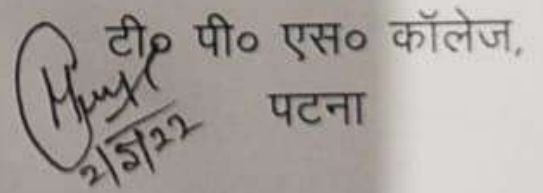 टी० पी० एस० कॉलेज,
पटना
2/5/22